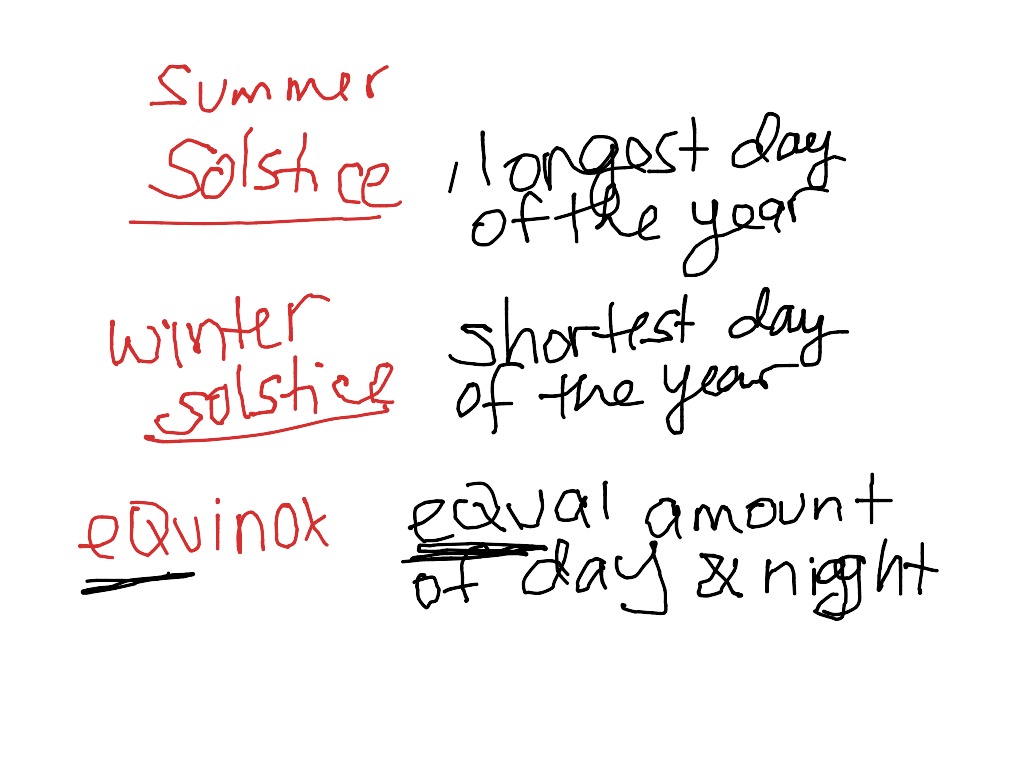 Summer
Solstice
, longest day
of the year
winter
solstice
shortest day
of the year
eQuinox
eQual amount
of day & night